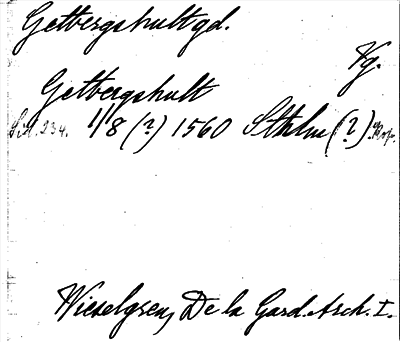 Getbergshult gd.
Vg.
Getbergshult
Sid. 234. 1/8 (?) 1560 Sthlm (?)
Wieselgren, De la Gard. Arch. I.